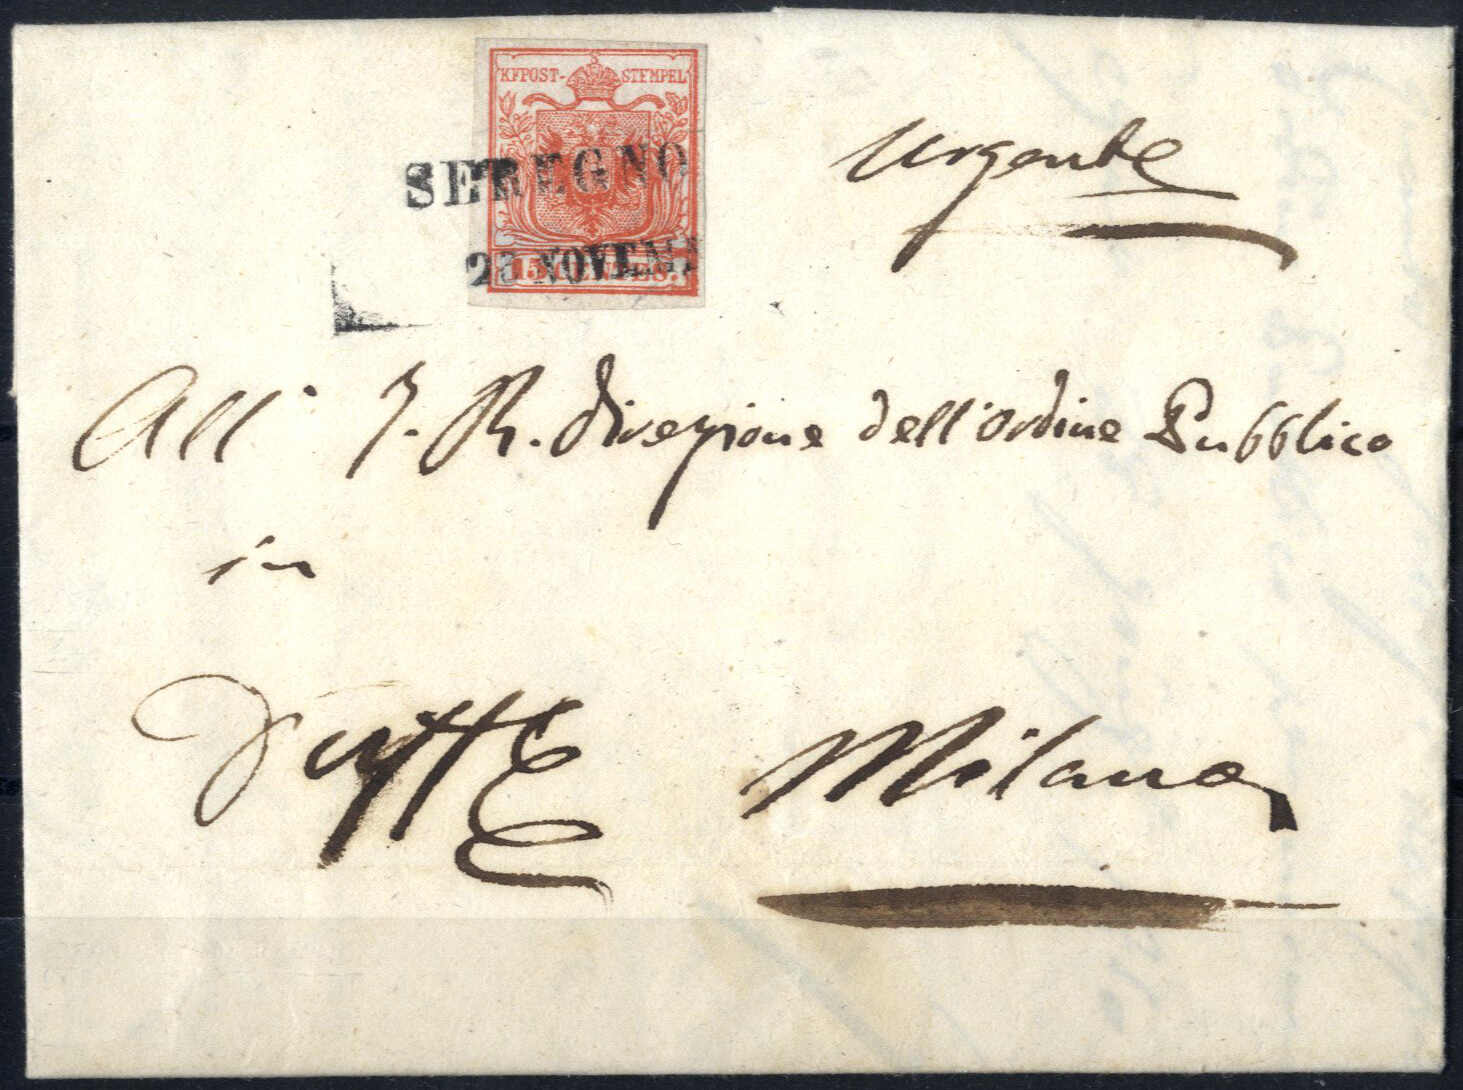 KFPOST- STEMPEL
SEREGNO
Urgente
15
NOVEM
All' I. R. Direzione dell'ordine Pubblico
in
Milano